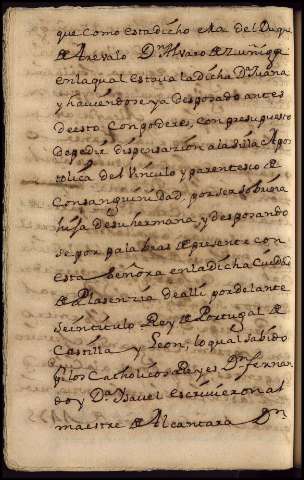 que como esta dicho era del Duque
de Arevalo Dn Alvaro de Zuñiga
en la qual estava la dicha Da Juana
y haviendose ya desposado antes
de esto, con poderes, con presupuesto
de pedir dispensazion a la silla Apos
tolica del Vinculo y parentesco de
Consanguinidad, por ser sobrina
hija de su hermana, y desposando
se por palabras de presente con
esta Señora en la dicha Ciudad
de Plasenzia de alli por delante
se intitulo Rey de Portugal de
Castilla y Leon, lo qual sabido
p los Catholicos Reyes Dn fernan
do y Da Isavel escrivieron al
maestre de Alcantara Dn